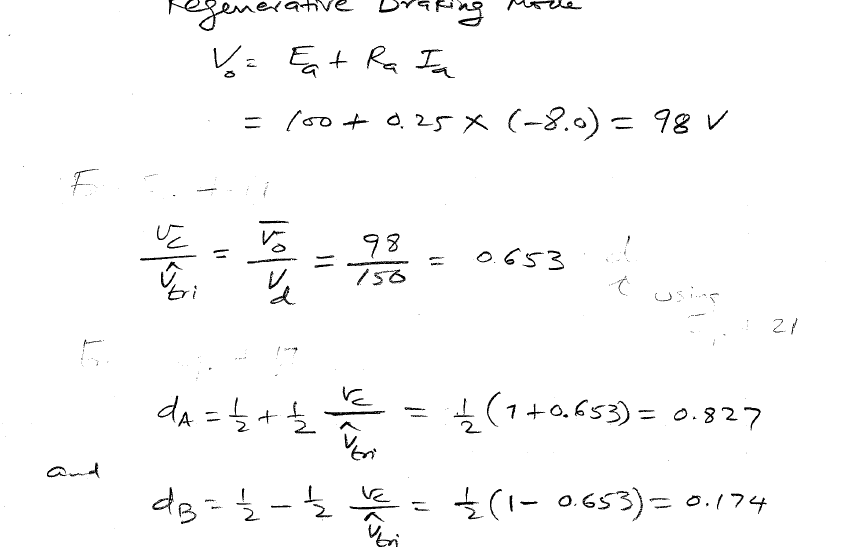 Regenerative Braking Mode
V₀ = E_a + R_a I_a
= 100 + 0.25 × (-8.0) = 98 V
v_c / V̂_tri = V̄₀ / V_d = 98 / 150 = 0.653
using
21
17
d_A = 1/2 + 1/2 v_c / V̂_tri = 1/2 (1 + 0.653) = 0.827
and
d_B = 1/2 - 1/2 v_c / V̂_tri = 1/2 (1 - 0.653) = 0.174